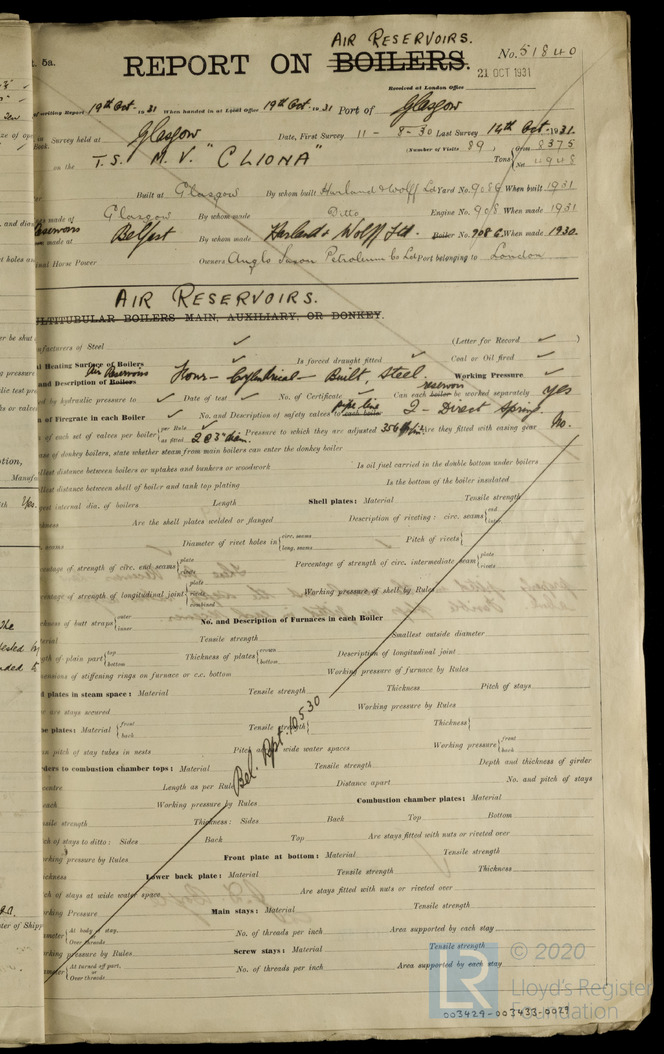 AIR RESERVOIRS.
t. 5a.
REPORT ON BOILERS.
No. 51840
21 OCT 1931
Received at London Office
of writing Report 19th Oct. 1931 When handed in at Local Office 19th Oct. 1931 Port of Glasgow
Survey held at Glasgow Date, First Survey 11-8-30 Last Survey 14th Oct. 1931
(Number of Visits 89) Tons Gross 8375 Net 4948
on the T.S. M.V. "CLIONA"
Built at Glasgow By whom built Harland & Wolff Ld Yard No. 908G When built 1931
made at Glasgow By whom made Ditto Engine No. 908 When made 1931
made at Belfast By whom made Harland & Wolff Ltd. Boiler No. 908G When made 1930.
Horse Power Owners Anglo Saxon Petroleum Co Ld Port belonging to London
AIR RESERVOIRS.
MULTITUBULAR BOILERS MAIN, AUXILIARY, OR DONKEY.
Manufacturers of Steel ✓ (Letter for Record ✓ )
Total Heating Surface of Boilers ✓ Is forced draught fitted ✓ Coal or Oil fired ✓
and Description of Boilers Air Reservoirs Four - Cylindrical - Built Steel. Working Pressure ✓
by hydraulic pressure to ✓ Date of test ✓ No. of Certificate ✓ Can each boiler reservoir be worked separately yes
of Firegrate in each Boiler ✓ No. and Description of safety valves to each boiler pipe line 2 - Direct Spring.
of each set of valves per boiler per Rule ✓ as fitted 2 @ 3" diam. Pressure to which they are adjusted 356 Are they fitted with easing gear No.
case of donkey boilers, state whether steam from main boilers can enter the donkey boiler
smallest distance between boilers or uptakes and bunkers or woodwork Is oil fuel carried in the double bottom under boilers
smallest distance between shell of boiler and tank top plating Is the bottom of the boiler insulated
internal dia. of boilers Length Shell plates: Material Tensile strength
Thickness Are the shell plates welded or flanged Description of riveting: circ. seams end inter.
seams Diameter of rivet holes in circ. seams long. seams Pitch of rivets
Percentage of strength of circ. end seams plate rivets Percentage of strength of circ. intermediate seam plate rivets
Percentage of strength of longitudinal joint plate rivets combined Working pressure of shell by Rules
Thickness of butt straps outer inner No. and Description of Furnaces in each Boiler
Material Tensile strength Smallest outside diameter
Length of plain part top bottom Thickness of plates crown bottom Description of longitudinal joint
Dimensions of stiffening rings on furnace or c.c. bottom Working pressure of furnace by Rules
plates in steam space: Material Tensile strength Thickness Pitch of stays
are stays secured Working pressure by Rules
plates: Material front back Tensile strength Thickness
pitch of stay tubes in nests Pitch across wide water spaces Working pressure front back
Girders to combustion chamber tops: Material Tensile strength Depth and thickness of girder
centre Length as per Rule Distance apart No. and pitch of stays
each Working pressure by Rules Combustion chamber plates: Material
Tensile strength Thickness: Sides Back Top Bottom
Pitch of stays to ditto: Sides Back Top Are stays fitted with nuts or riveted over
Working pressure by Rules Front plate at bottom: Material Tensile strength
Thickness Lower back plate: Material Tensile strength Thickness
Pitch of stays at wide water space Are stays fitted with nuts or riveted over
Working Pressure Main stays: Material Tensile strength
Diameter At body of stay, or Over threads No. of threads per inch Area supported by each stay
Working pressure by Rules Screw stays: Material Tensile strength
Diameter At turned off part, or Over threads No. of threads per inch Area supported by each stay
Bel. Rpt. 10530
© 2020
LR
Lloyd's Register
Foundation
003429-003433-0029